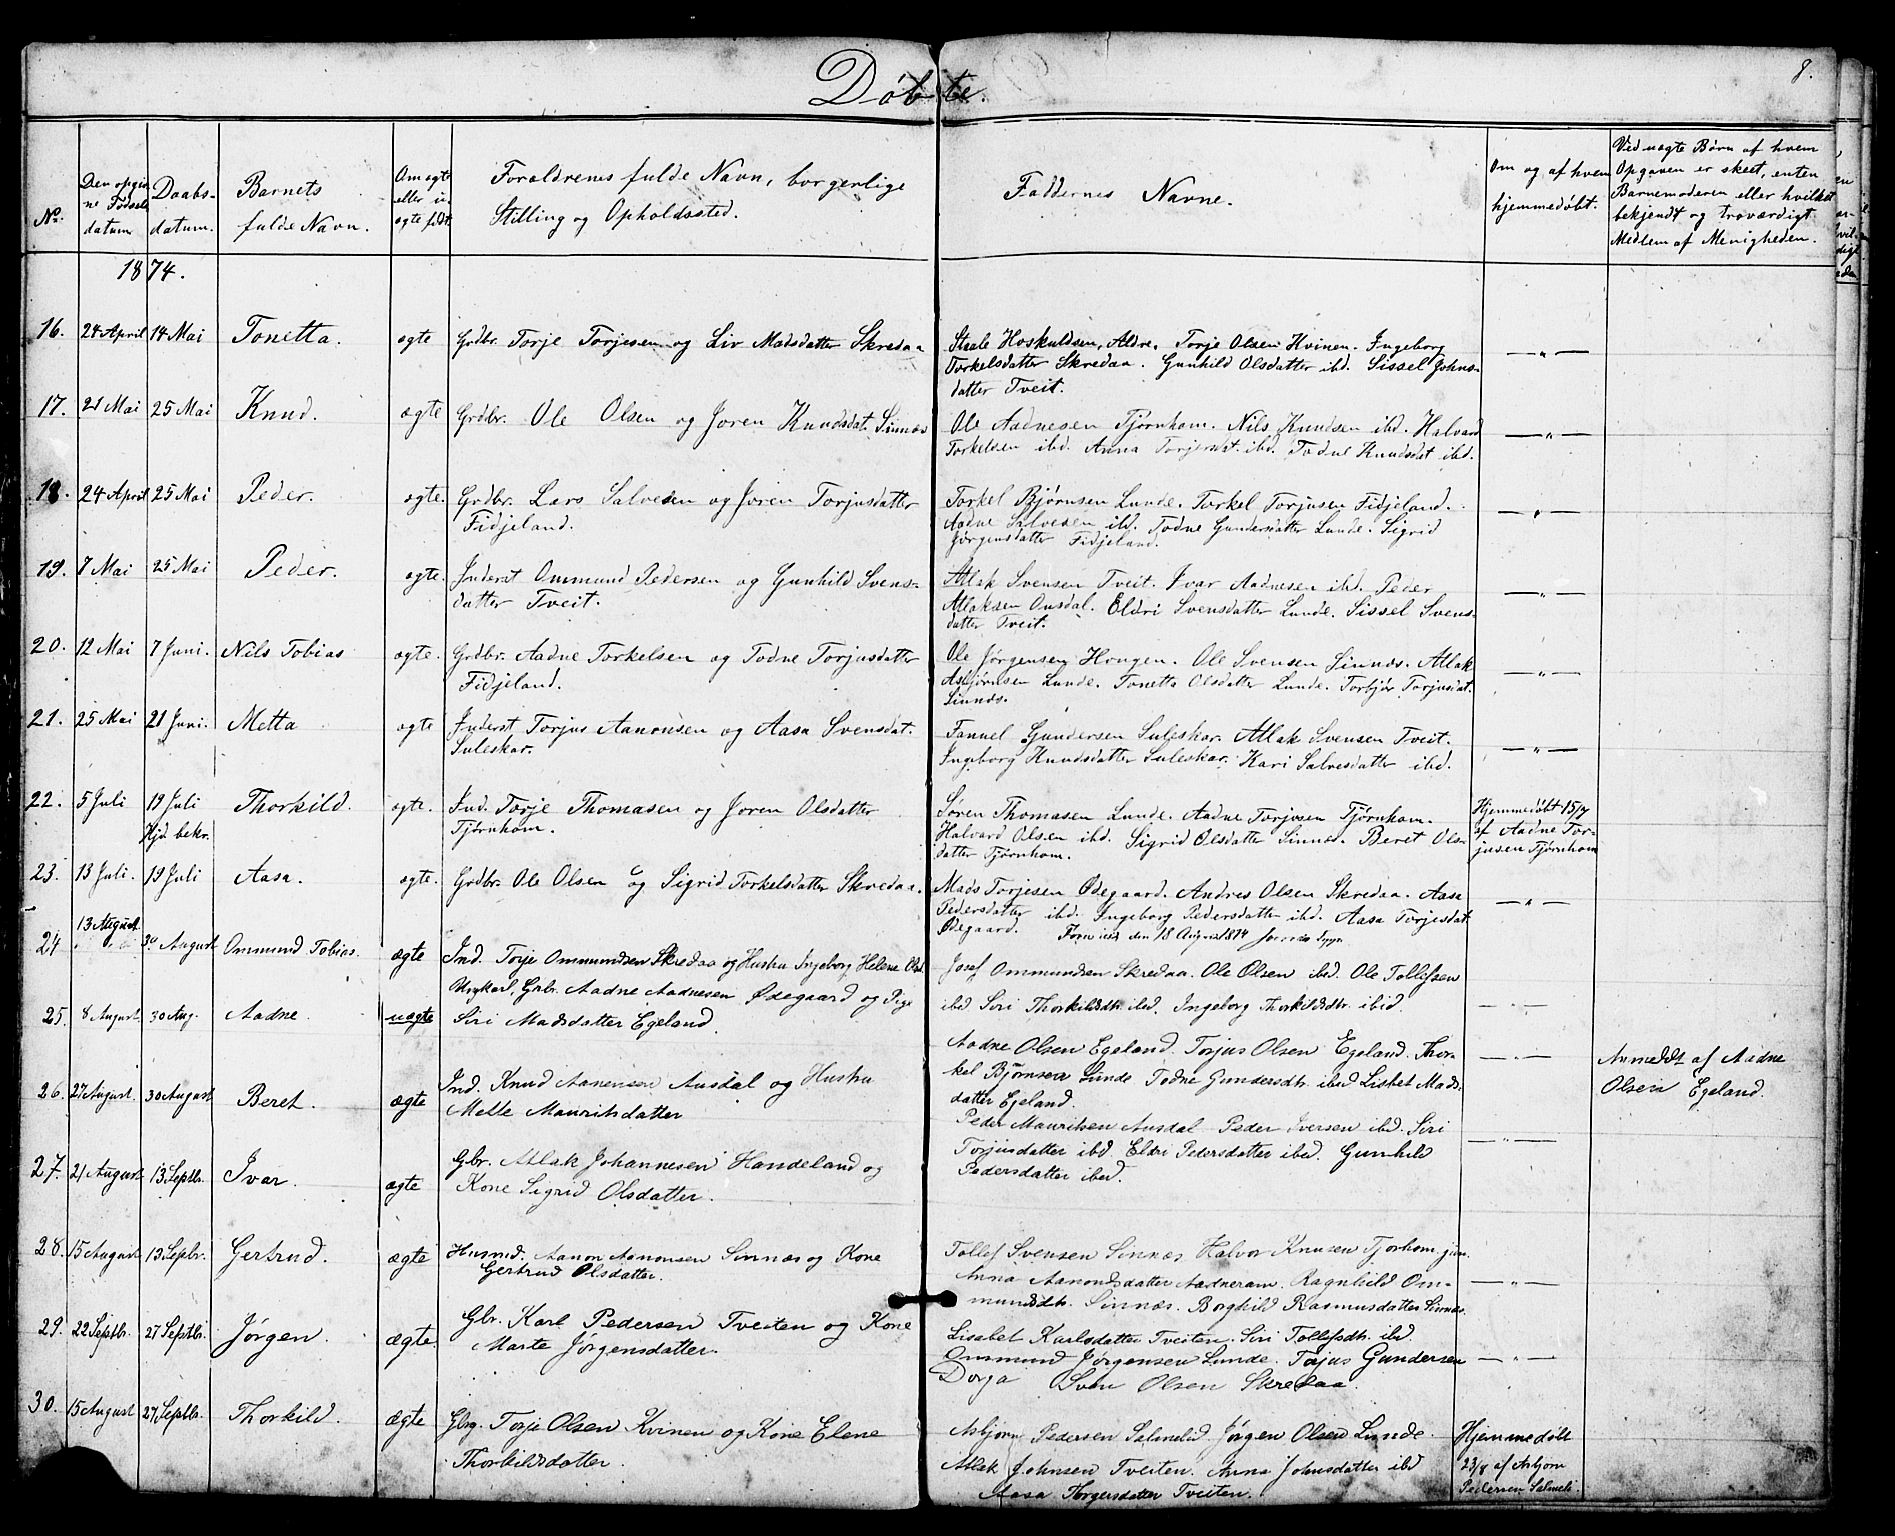 Døbte.
8.
No.
Den opgiv-
ne Fødsels
datum
Daabs-
datum.
Barnets
fulde Navn.
Om ægte
eller u-
ægte født.
Forældrenes fulde Navn, borgerlige
Stilling og Opholdssted.
Faddernes Navne.
Om og af hvem
hjemmedøbt.
Ved uægte Børn af hvem
Opgaven er skeet, enten
Barnemoderen eller hvilket
bekjendt og troværdigt
Medlem af Menigheden.
1874.
16. 24 April 14 Mai Tonetta. ægte Grdbr. Torje Torjesen og Liv Madsdatter Skredaa
Staale Hoskuldsen, Aldre. Torje Olsen Hvinen. Ingeborg
Torkelsdatter Skredaa. Gunhild Olsdatter ibd. Sissel Johns-
datter Tveit.
— „ —
17. 21 Mai 25 Mai Knud. ægte Grdbr. Ole Olsen og Joren Knudsdat. Sinnæs
Ole Aadnesen Tjørnhom. Nils Knudsen ibd. Halvard
Torkelsen ibd. Anna Torjersdat. ibd. Todne Knudsdat ibd.
— „ —
18. 24 April 25 Mai Peder. ægte. Grdbr. Lars Salvesen og Joren Torjusdatter
Fidjeland.
Torkel Bjørnsen Lunde. Torkel Torjusen Fidjeland.
Aadne Salvesen ibd. Todne Gundersdatter Lunde. Sigrid
Jørgensdatter Fidjeland.
— „ —
19. 7 Mai 25 Mai Peder. ægte. Inderst Ommund Pedersen og Gunhild Svens-
datter Tveit.
Atlak Svensen Tveit. Ivar Aadnesen ibd. Peder
Atlaksen Ousdal. Eldri Svensdatter Lunde. Sissel Svens-
datter Tveit.
— „ —
20. 12 Mai 7 Juni. Nils Tobias ægte. Grdbr. Aadne Torkelsen og Todne Torjusdatter
Fidjeland.
Ole Jørgensen Hougen. Ole Svensen Sinnæs. Atlak
Asbjørnsen Lunde. Tonetta Olsdatter Lunde. Torbjør Torjusdat.
Sinnæs.
— „ —
21. 25 Mai 21 Juni. Metta ægte Inderst Torjus Aanonsen og Aasa Svensdat.
Suleskar.
Fanuel Gundersen Suleskar. Atlak Svensen Tveit.
Ingeborg Knudsdatter Suleskar. Kari Salvesdatter ibd.
— „ —
22. 5 Juli 19 Juli Thorkild. ægte. Ind. Torje Thomasen og Joren Olsdatter
Hjd. bekr. Tjørnhom.
Søren Thomasen Lunde. Aadne Torjusen Tjørnhom.
Halvard Olsen ibd. Sigrid Olsdatter Sinnæs. Beret Ols-
datter Tjørnhom.
Hjemmedøbt 15/7
af Aadne Tor-
jusen Tjørnhom
23. 13 Juli. 19 Juli Aasa. ægte. Grdbr. Ole Olsen og Sigrid Torkelsdatter Skredaa.
Mads Torjesen Ødegaard. Andres Olsen Skredaa. Aasa
Pedersdatter ibd. Ingeborg Pedersdatter ibd. Aasa Torjesdat
Ødegaard. den 18 August 1874
— „ —
24 13 August 30 August Ommund Tobias. ægte Ind. Torje Ommundsen Skredaa og Hustru Ingeborg Helene Olsd.
Josef Ommundsen Skredaa. Ole Olsen ibd. Ole Tollefsen
ibd Siri Thorkildsdtr. ibd. Ingeborg Thorkildsdtr. ibid.
— „ —
25. 8 August. 30 Aug. Aadne. uægte Ungkarl, Gbr. Aadne Aadnesen Ødegaard og Pige
Siri Madsdatter Egeland.
Aadne Olsen Egeland. Torjus Olsen Egeland. Thor-
kel Bjørnsen Lunde Todne Gundersdtr. ibid Lisbet Mads-
datter Egeland.
— „ —
Anmeldt af Aadne
Olsen Egeland.
26. 27 August. 30 August Beret. ægte Ind. Knud Aanensen Ausdal og Hustru
Mette Mauritsdatter
Peder Mauritsen Ausdal Peder Iversen ibd. Siri
Torjusdatter ibd Eldri Pedersdatter ibid. Gunhild
Pedersdatter ibid.
— „ —
27. 21 August 13 Septbr. Ivar. ægte Gbr. Atlak Johannesen Handeland og
Kone Sigrid Olsdatter.
28. 15 August 13 Sepbr. Gertrud. ægte Husmd. Aanon Aanonsen Sinnæs og Kone
Gertrud Olsdatter.
Tollef Svensen Sinnæs Halvor Knusen Tjorhom jun.
Anna Aanondsdatter Aadneram. Ragnhild Om-
mundsdtr. Sinnæs. Borghild Rasmusdatter Sinnæs.
— „ —
29. 22 Septbr. 27 Septbr. Jørgen. ægte. Gbr. Karl Pedersen Tveiten og Kone
Marte Jørgensdatter.
Lisabet Karlsdatter Tveiten. Siri Tollefsdtr. ibd.
Ommund Jørgensen Lunde. Torjus Gundersen
Dorga Sven Olsen Skredaa.
— „ —
30. 15 August 27 Septbr. Thorkild. ægte Gbrg. Torje Olsen Kvinen og Kone Elene
Thorkildsdatter.
Asbjørn Pedersen Salmelid Jørgen Olsen Lunde.
Atlak Johnsen Tveiten. Anna Johnsdatter ibd
Aasa Thorgersdatter Tveiten.
Hjemmedøbt
23/8 af Asbjorn
Pedersen Salmeli.